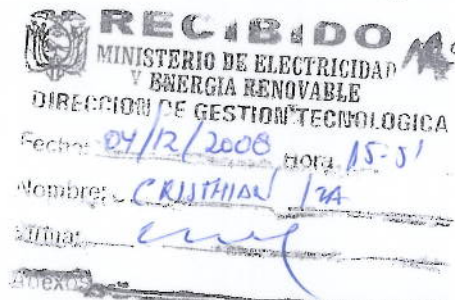 RECIBIDO
MINISTERIO DE ELECTRICIDAD
Y ENERGIA RENOVABLE
DIRECCION DE GESTION TECNOLOGICA
Fecha: 04/12/2008 Hora 15-51
Nombre: CRISTHIAN IZA
Firma:
Anexos